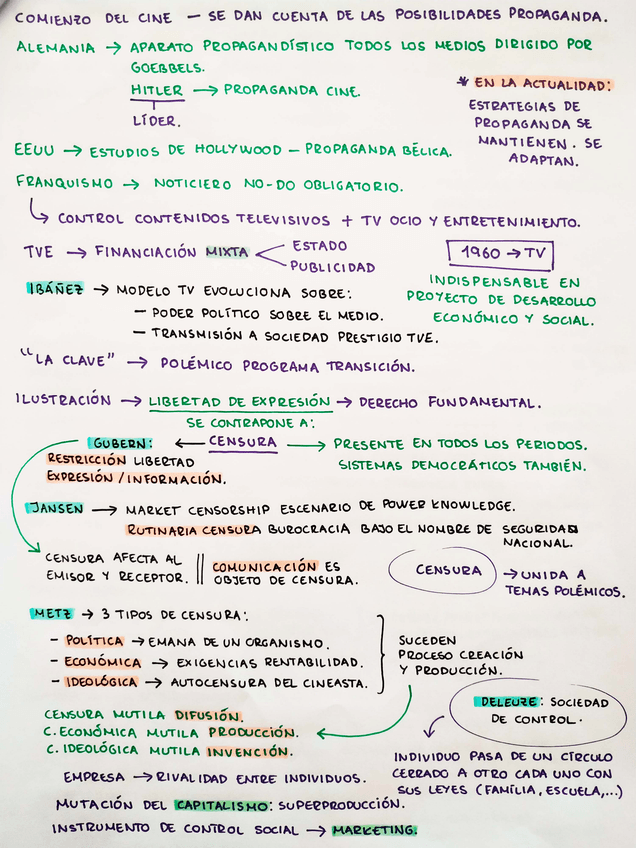 COMIENZO DEL CINE — SE DAN CUENTA DE LAS POSIBILIDADES PROPAGANDA.
ALEMANIA → APARATO PROPAGANDÍSTICO TODOS LOS MEDIOS DIRIGIDO POR
GOEBBELS.
HITLER → PROPAGANDA CINE.
LÍDER.
* EN LA ACTUALIDAD:
ESTRATEGIAS DE
PROPAGANDA SE
MANTIENEN. SE
ADAPTAN.
EEUU → ESTUDIOS DE HOLLYWOOD — PROPAGANDA BÉLICA.
FRANQUISMO → NOTICIERO NO-DO OBLIGATORIO.
↳ CONTROL CONTENIDOS TELEVISIVOS + TV OCIO Y ENTRETENIMIENTO.
TVE → FINANCIACIÓN MIXTA < ESTADO
PUBLICIDAD
1960 → TV
INDISPENSABLE EN
PROYECTO DE DESARROLLO
ECONÓMICO Y SOCIAL.
IBÁÑEZ → MODELO TV EVOLUCIONA SOBRE:
— PODER POLÍTICO SOBRE EL MEDIO.
— TRANSMISIÓN A SOCIEDAD PRESTIGIO TVE.
"LA CLAVE" → POLÉMICO PROGRAMA TRANSICIÓN.
ILUSTRACIÓN → LIBERTAD DE EXPRESIÓN → DERECHO FUNDAMENTAL.
SE CONTRAPONE A:
GUBERN: ← CENSURA → PRESENTE EN TODOS LOS PERIODOS.
RESTRICCIÓN LIBERTAD
EXPRESIÓN / INFORMACIÓN.
SISTEMAS DEMOCRÁTICOS TAMBIÉN.
JANSEN → MARKET CENSORSHIP ESCENARIO DE POWER KNOWLEDGE.
RUTINARIA CENSURA BUROCRACIA BAJO EL NOMBRE DE SEGURIDAD
NACIONAL.
CENSURA AFECTA AL
EMISOR Y RECEPTOR.
COMUNICACIÓN ES
OBJETO DE CENSURA.
CENSURA → UNIDA A
TEMAS POLÉMICOS.
METZ → 3 TIPOS DE CENSURA:
— POLÍTICA → EMANA DE UN ORGANISMO.
— ECONÓMICA → EXIGENCIAS RENTABILIDAD.
— IDEOLÓGICA → AUTOCENSURA DEL CINEASTA.
SUCEDEN
PROCESO CREACIÓN
Y PRODUCCIÓN.
CENSURA MUTILA DIFUSIÓN.
C. ECONÓMICA MUTILA PRODUCCIÓN.
C. IDEOLÓGICA MUTILA INVENCIÓN.
DELEUZE: SOCIEDAD
DE CONTROL.
INDIVIDUO PASA DE UN CÍRCULO
CERRADO A OTRO CADA UNO CON
SUS LEYES (FAMÍLIA, ESCUELA,...)
EMPRESA → RIVALIDAD ENTRE INDIVIDUOS.
MUTACIÓN DEL CAPITALISMO: SUPERPRODUCCIÓN.
INSTRUMENTO DE CONTROL SOCIAL → MARKETING.